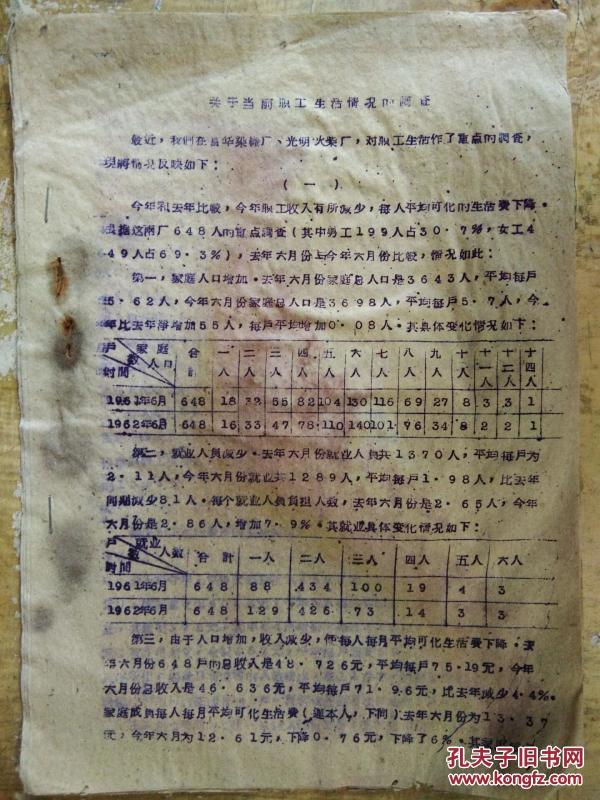 关于当前职工生活情况的调查
最近，我們在 华梁 厂、光明火柴厂，对职工生活作了重点的調查，
现將情况反映如下：
（一）
今年和去年比較，今年职工收入有所减少，每人平均可化的生活費下降·
根据这兩厂648人的重点調查（其中男工199人占30·7%，女工4
49人占69·3%），去年六月份与今年六月份比較，情况如此：
第一，家庭人口增加·去年六月份家庭总人口是3643人，平均每戶
5·62人，今年六月份家庭总人口是3698人，平均每戶5·7人，今
年比去年淨增加55人，每戶平均增加0·08人·其具体变化情况如下：
戶数 家庭人口 时間 合計 一人 二人 三人 四人 五人 六人 七人 八人 九人 十人 十一人 十二人 十四人
1961年6月 648 18 32 55 82 104 130 116 69 27 8 3 3 1
1962年6月 648 16 33 47 78 110 140 101 76 34 8 2 2 1
第二，就业人員减少·去年六月份就业人員共1370人，平均每戶为
2·11人，今年六月份就业共1289人，平均每戶1·98人，比去年
同期减少81人·每个就业人員負担人数，去年六月份是2·65人，今年
六月份是2·86人，增加7·9%·其就业具体变化情况如下：
戶数 就业人数 时間 合計 一人 二人 三人 四人 五人 六人
1961年6月 648 88 434 100 19 4 3
1962年6月 648 129 426 73 14 3 3
第三，由于人口增加，收入减少，使每人每月平均可化生活費下降·去
年六月份648戶的总收入是48·726元，平均每戶75·19元，今年
六月份总收入是46·636元，平均每戶71·96元，比去年减少4·4%·
家庭成員每人每月平均可化生活費（連本人，下同）去年六月份为13·37
元，今年六月为12·61元，下降0·76元，下降了6%·其
孔夫子旧书网
www.kongfz.com